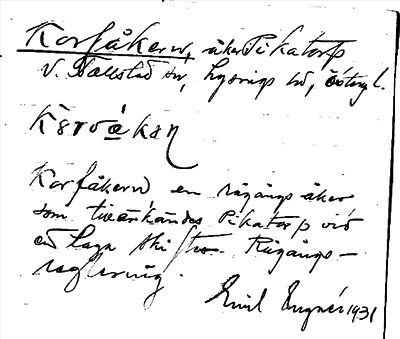 Korfåkern, åker Pikatorp
V. Tollstad sn, Lysings hd, Östergl.
Korfåkern en rågångsåker
som tillerkändes Pikatorp vid
en laga skiftes Rågångs-
reglering.
Emil Ungnér 1931